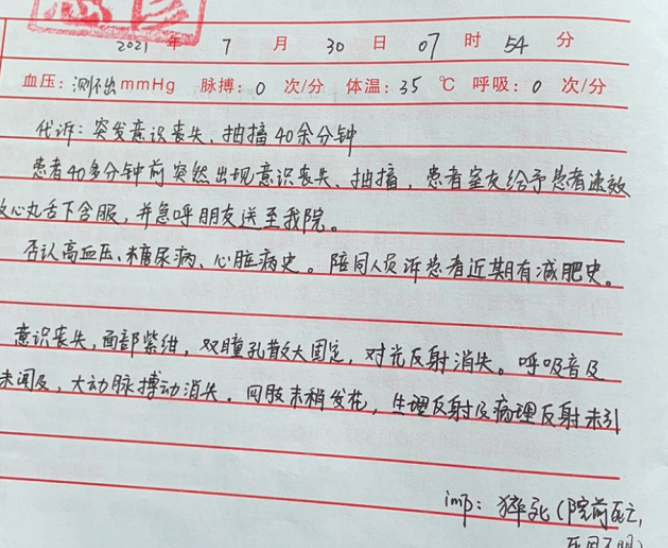 2021 年 7 月 30 日 07 时 54 分
血压: 测不出 mmHg 脉搏: 0 次/分 体温: 35 ℃ 呼吸: 0 次/分
代诉: 突发意识丧失、抽搐40余分钟
患者40多分钟前突然出现意识丧失、抽搐, 患者室友给予患者速效
救心丸舌下含服, 并急呼朋友送至我院。
否认高血压、糖尿病、心脏病史。陪同人员诉患者近期有减肥史。
意识丧失, 面部紫绀, 双瞳孔散大固定, 对光反射消失。呼吸音及
未闻及, 大动脉搏动消失. 四肢末稍发花, 生理反射及病理反射未引
imp: 猝死(院前死亡,
死因不明)